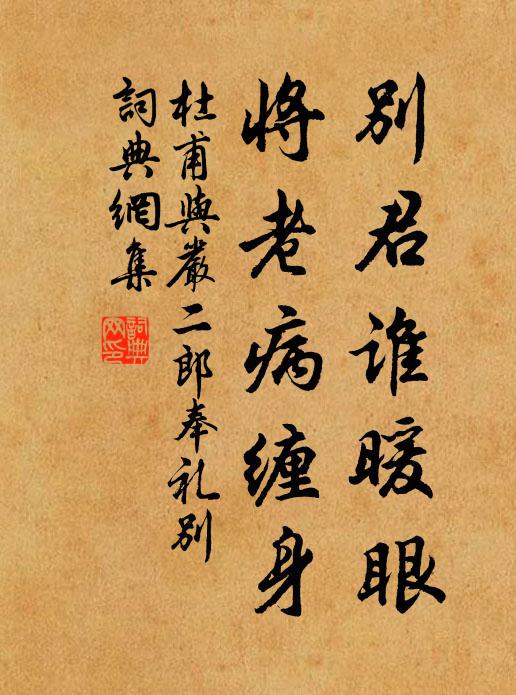 别君谁暖眼
将老病缠身
杜甫與嚴二郎奉礼别
詞典網集
詞典
网印